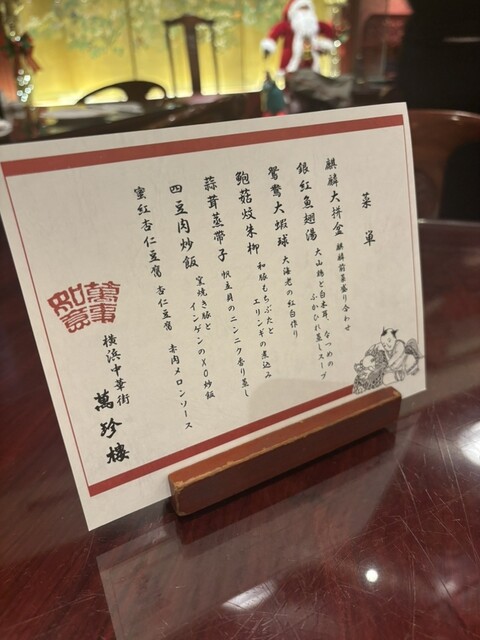 菜單
麒麟大拼盆 麒麟前菜盛り合わせ
銀紅魚翅湯 大山鶏と白木耳、なつめの
ふかひれ蒸しスープ
鴛鴦大蝦球 大海老の紅白作り
鮑菇炆朱柳 和豚もちぶたと
エリンギの煮込み
蒜茸蒸帶子 帆立貝のニンニク香り蒸し
四豆肉炒飯 窯焼き豚と
インゲンのXO炒飯
蜜紅杏仁豆腐 杏仁豆腐 赤肉メロンソース
萬事如意
橫浜中華街
萬珍樓